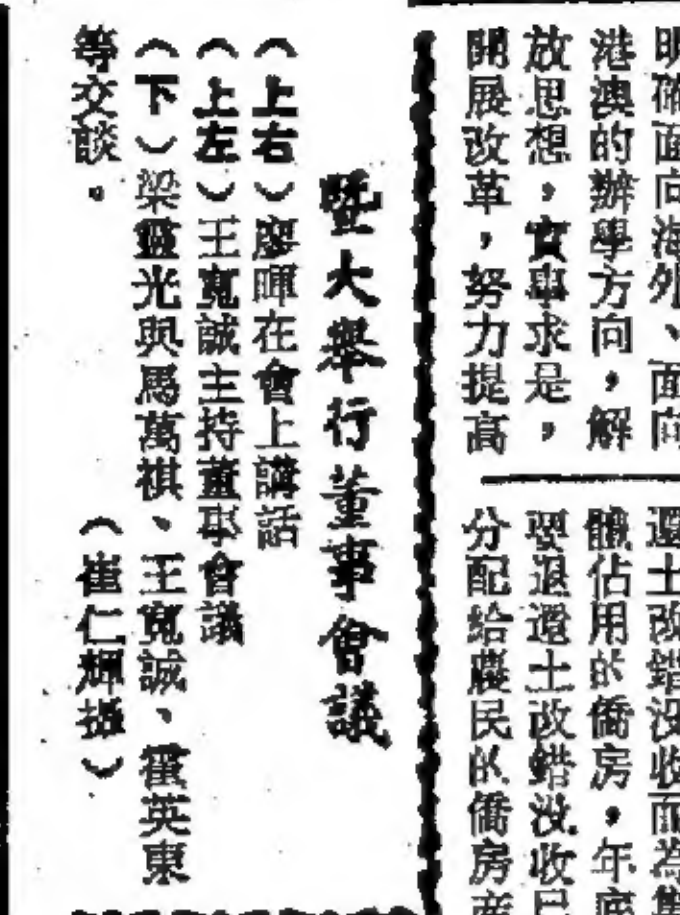 明確面向海外、面向
港澳的辦學方向，解
放思想，實事求是，
開展改革，努力提高
還土改錯沒收而為集
體佔用的僑房，年底
要退還土改錯沒收已
分配給農民的僑房產
暨大舉行董事會議
（上右）廖暉在會上講話
（上左）王寬誠主持董事會議
（下）梁靈光與馬萬祺、王寬誠、霍英東
等交談。（崔仁輝攝）